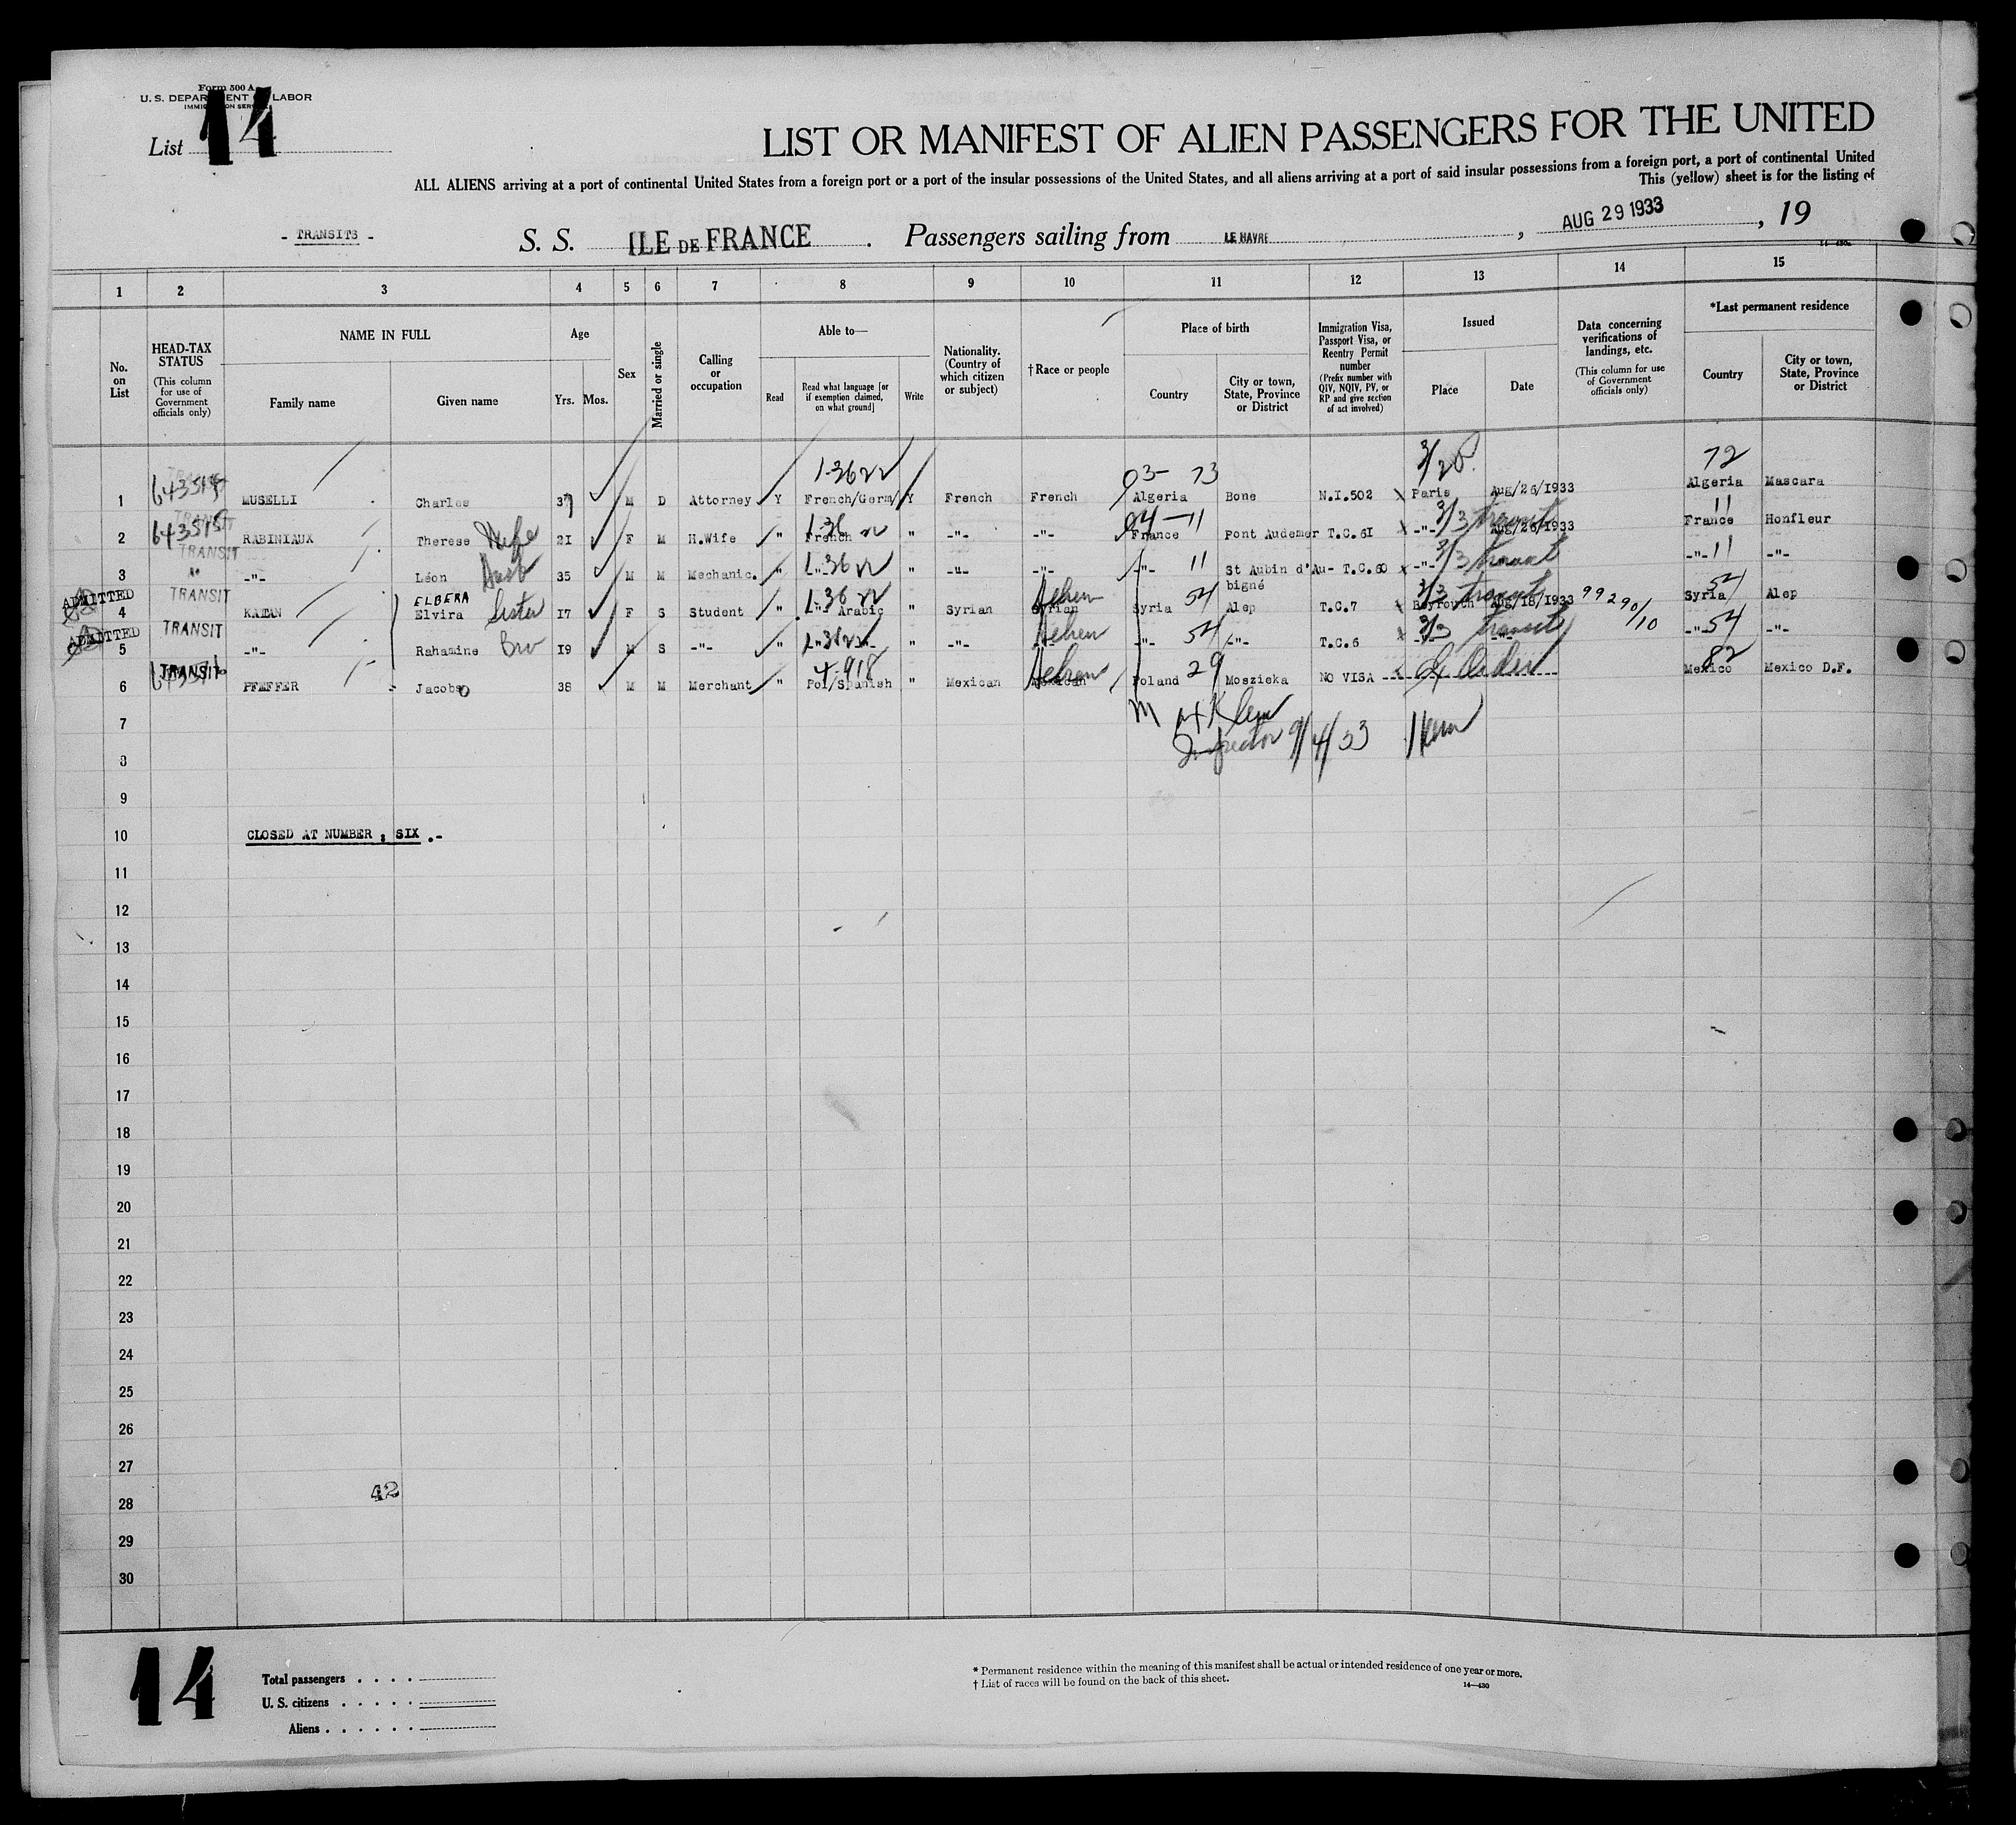 Form 500 A
U. S. DEPARTMENT OF LABOR
IMMIGRATION SERVICE
List 14
LIST OR MANIFEST OF ALIEN PASSENGERS FOR THE UNITED
ALL ALIENS arriving at a port of continental United States from a foreign port or a port of the insular possessions of the United States, and all aliens arriving at a port of said insular possessions from a foreign port, a port of continental United
This (yellow) sheet is for the listing of
- TRANSITS - S. S. ILE DE FRANCE . Passengers sailing from LE HAVRE , AUG 29 1933 , 19
14—430
1 2 3 4 5 6 7 8 9 10 11 12 13 14 15
No. on List
HEAD-TAX STATUS (This column for use of Government officials only)
NAME IN FULL
Family name
Given name
Age
Yrs. Mos.
Sex
Married or single
Calling or occupation
Able to—
Read
Read what language [or if exemption claimed, on what ground]
Write
Nationality. (Country of which citizen or subject)
†Race or people
Place of birth
Country
City or town, State, Province or District
Immigration Visa, Passport Visa, or Reentry Permit number (Prefix number with QIV, NQIV, PV, or RP and give section of act involved)
Issued
Place
Date
Data concerning verifications of landings, etc. (This column for use of Government officials only)
*Last permanent residence
Country
City or town, State, Province or District
1-36 22 03- 73 3/2 P. 72
1 TRANSIT MUSELLI Charles 37 M D Attorney Y French/Germ/ Y French French Algeria Bone N.I.502 Paris Aug/26/1933 Algeria Mascara
1-36 22 04-11 3/3 transit 11
2 643515 TRANSIT RABINIAUX Therese Wife 21 F M H.Wife " French " -"- -"- France Pont Audemer T.C.61 -"- Aug/26/1933 France Honfleur
1-36 22 11 3/3 transit 11
3 TRANSIT " -"- Léon Husb 35 M M Mechanic. " -"- " -"- -"- -"- St Aubin d'Au- T.C.60 -"- -"- -"-
bigné
ELBERA 1-36 22 Hebrew 54 3/3 transit 54
4 ADMITTED TRANSIT KATAN Elvira Sister 17 F S Student " -"- Arabic " Syrian Syrian Syria Alep T.C.7 Beyrouth Aug/18/1933 99290/10 Syria Alep
1-36 22 Hebrew 54 3/3 transit 54
5 ADMITTED TRANSIT -"- Rahamine Bro 19 M S -"- " -"- " -"- -"- -"- -"- T.C.6 -"- -"- -"- -"-
4-918 Hebrew 29 82
6 TRANSIT PFEFFER Jacobo 38 M M Merchant " Pol/Spanish " Mexican Mexican Poland Moszieka NO VISA Mexico Mexico D.F.
7 Max Klein
8 Inspector 9/4/33
9
10 CLOSED AT NUMBER : SIX .-
11
12
13
14
15
16
17
18
19
20
21
22
23
24
25
26
27
42
28
29
30
14
Total passengers . . . .
U. S. citizens . . . . .
Aliens . . . . . .
* Permanent residence within the meaning of this manifest shall be actual or intended residence of one year or more.
† List of races will be found on the back of this sheet.
14—430